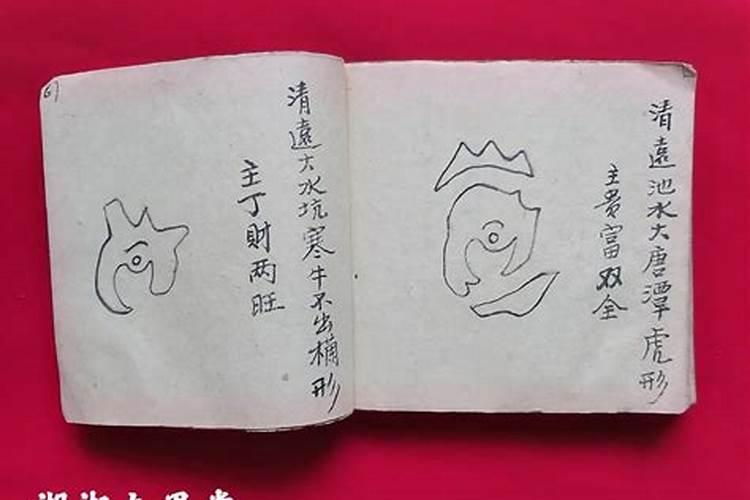 清遠池水大唐潭虎形
主貴富双全
清遠大水坑寒牛不出桶形
主丁財两旺